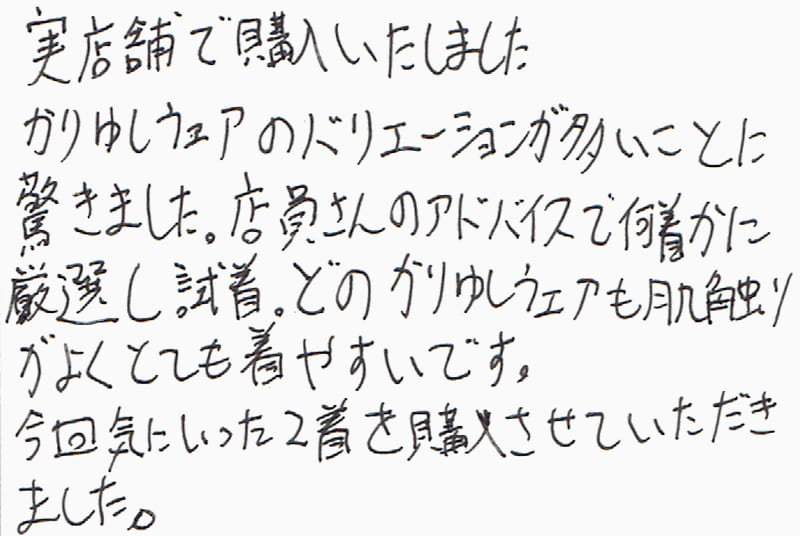 実店舗で購入いたしました
かりゆしウェアのバリエーションが多いことに
驚きました。店員さんのアドバイスで何着かに
厳選し試着。どのかりゆしウェアも肌触り
がよくとても着やすいです。
今回気にいった2着を購入させていただき
ました。